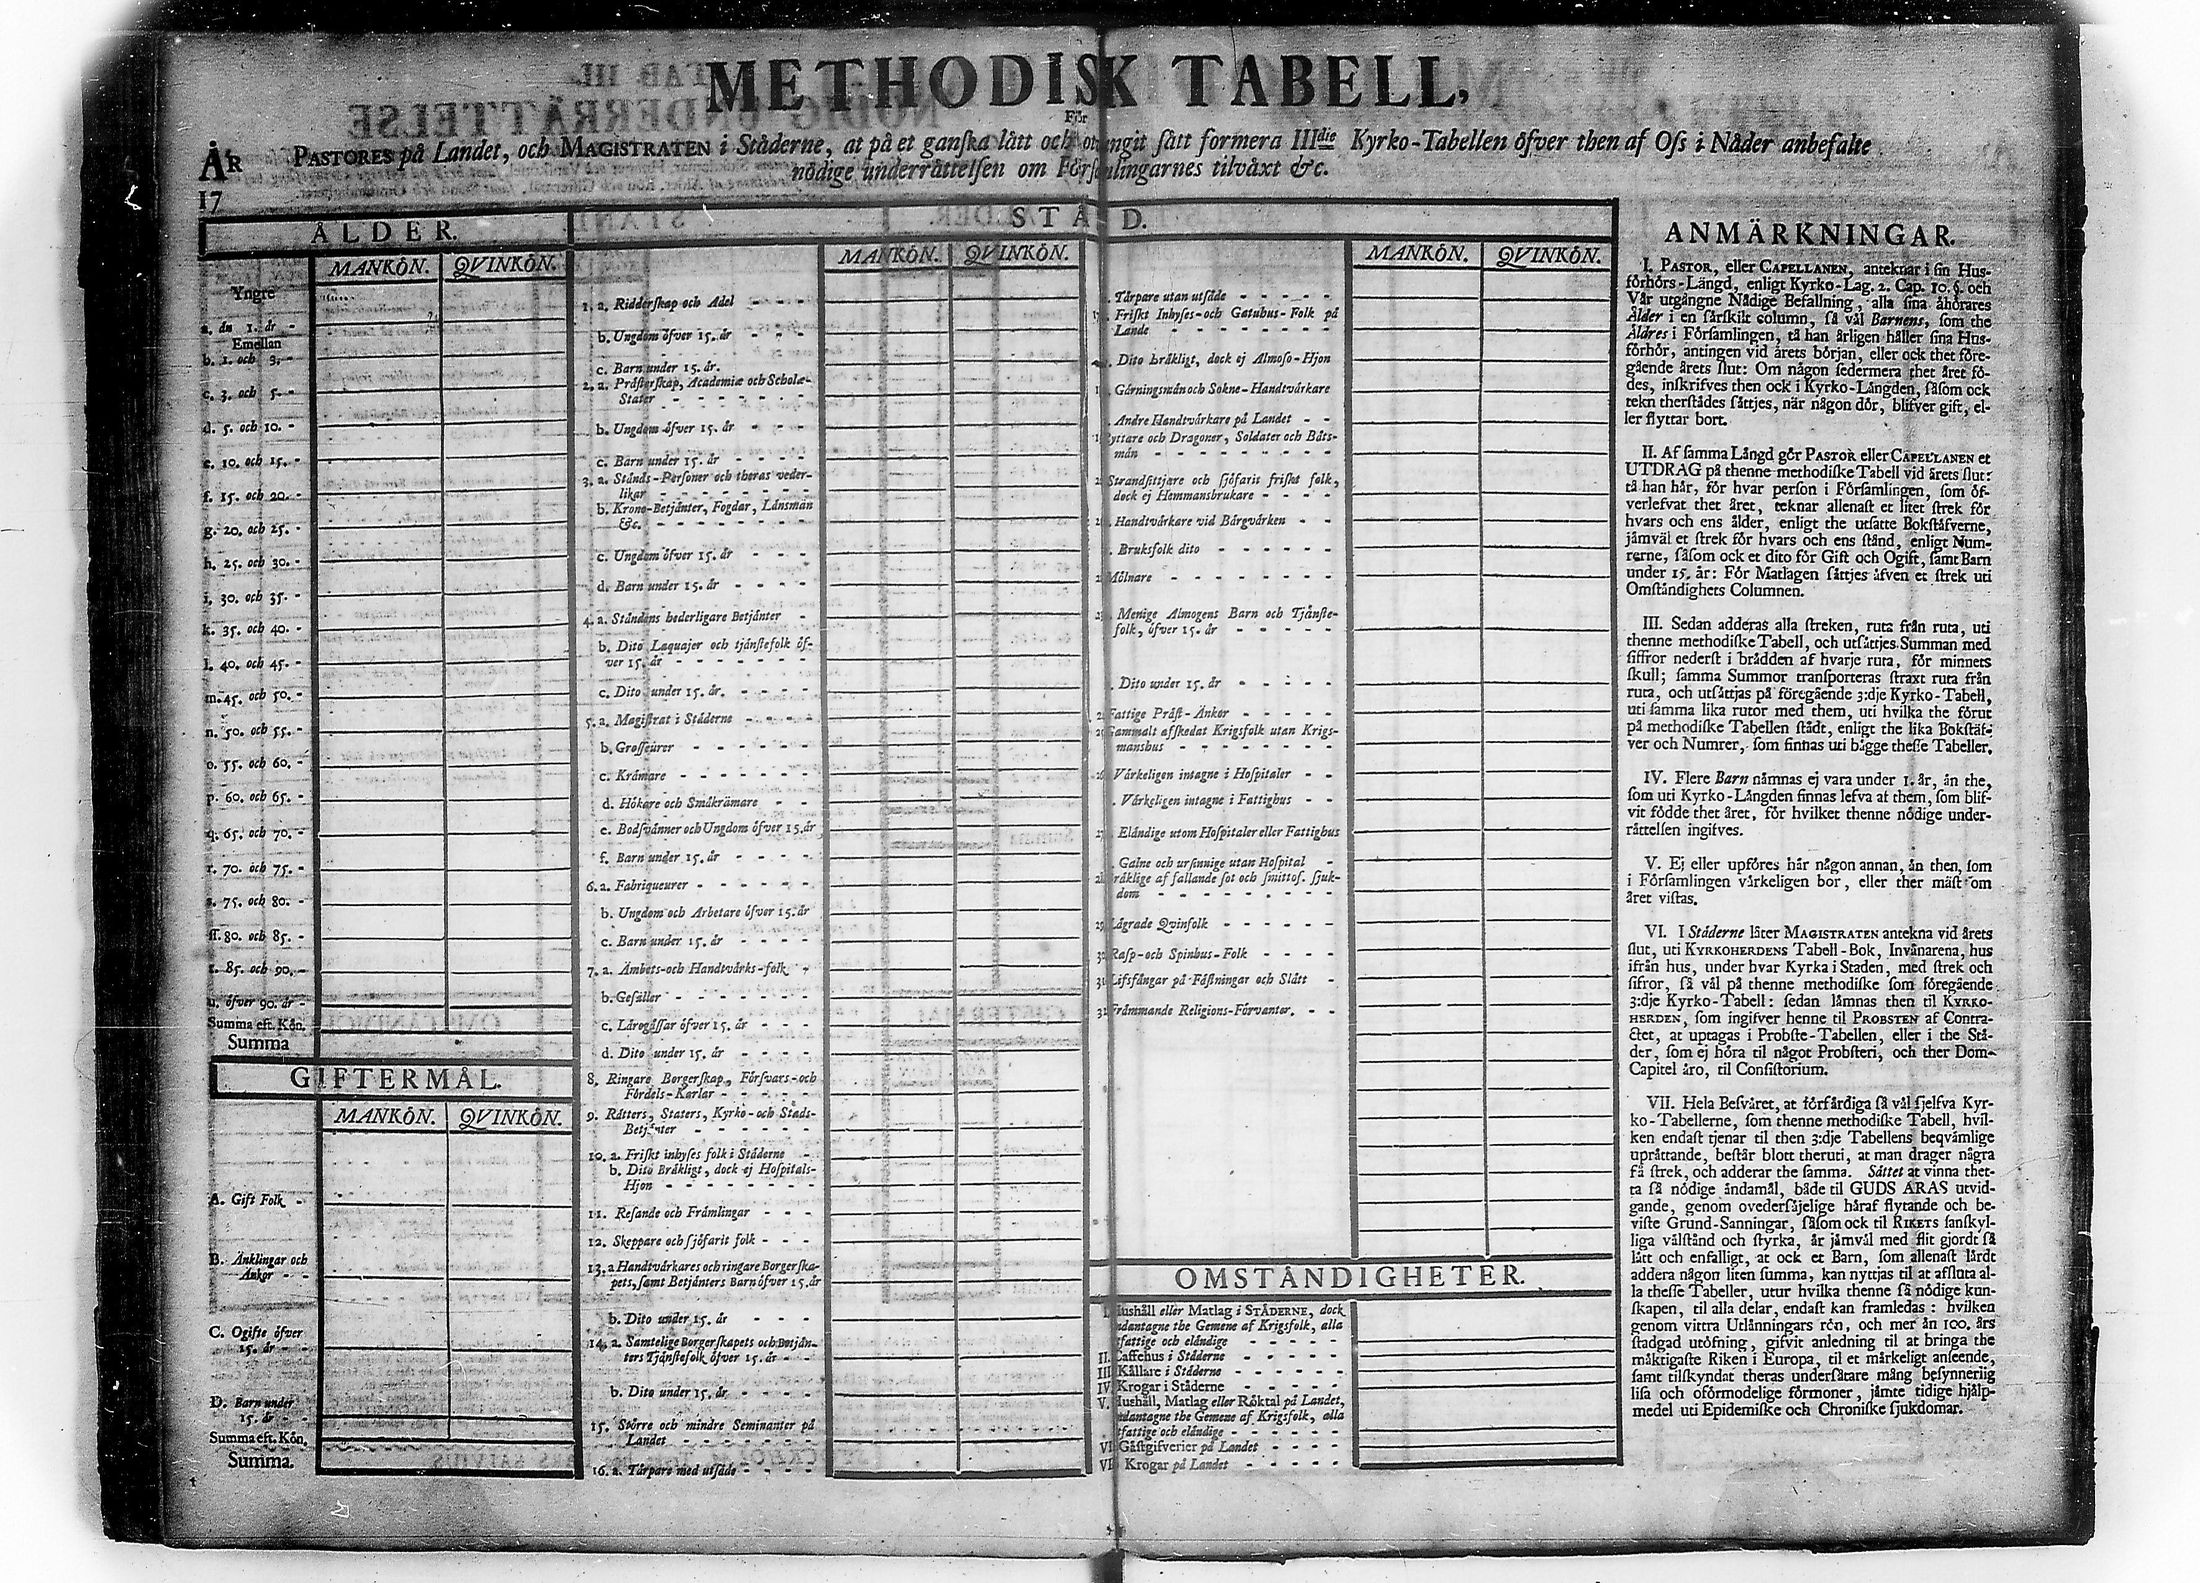 METHODISK TABELL,
För
ÅR
17
PASTORES på Landet, och MAGISTRATEN i Ståderne, at på et ganſka lått och otvungit ſått formera IIIdie Kyrko-Tabellen öfver then af Oſs i Nåder anbefalte
nödige underråttelſen om Förſamlingarnes tilvåxt &c.
ÅLDER.
MANKÖN. QVINKÖN.
Yngre
a. än 1. år -
Emellan
b. 1. och 3. -
c. 3. och 5. -
d. 5. och 10. -
e. 10. och 15. -
f. 15. och 20. -
g. 20. och 25. -
h. 25. och 30. -
i. 30. och 35. -
k. 35. och 40. -
l. 40. och 45. -
m. 45. och 50. -
n. 50. och 55. -
o. 55. och 60. -
p. 60. och 65. -
q. 65. och 70. -
r. 70. och 75. -
s. 75. och 80. -
ſſ. 80. och 85. -
t. 85. och 90. -
u. öfver 90. år -
Summa eft. Kön.
Summa
GIFTERMÅL.
MANKÖN. QVINKÖN.
A. Gift Folk -
B. Änklingar och
Änkor - -
C. Ogifte öfver
15. år - -
D. Barn under
15. år - -
Summa eft. Kön.
Summa.
STÅND.
MANKÖN. QVINKÖN.
1. a. Ridderſkap och Adel - - -
b. Ungdom öfver 15. år - - -
c. Barn under 15. år.
2. a. Pråſterſkap, Academiæ och Scholæ-
Stater - - - - - - -
b. Ungdom öfver 15. år - - -
c. Barn under 15. år - - - -
3. a. Stånds-Perſoner och theras veder-
likar - - - - - - -
b. Krono-Betjånter, Fogdar, Lånsmån
&c. - - - - - - -
c. Ungdom öfver 15. år - - -
d. Barn under 15. år - - - -
4. a. Ståndens hederligare Betjånter -
b. Dito Laquajer och tjånſtefolk öf-
ver 15. år - - - - - - -
c. Dito under 15. år. - - - -
5. a. Magiſtrat i Ståderne - - - -
b. Groſſeurer - - - - - -
c. Kråmare - - - - - - -
d. Hökare och Småkrämare - -
e. Bodſvånner och Ungdom öfver 15. år
f. Barn under 15. år - - - -
6. a. Fabriqueurer - - - - - -
b. Ungdom och Arbetare öfver 15. år
c. Barn under 15. år - - - -
7. a. Åmbets-och Handtvårks-folk -
b. Geſåller - - - - - - -
c. Låregåſſar öfver 15. år - - -
d. Dito under 15. år - - - -
8. Ringare Borgerſkap, Förſvars-och
Fördels-Karlar - - - - -
9. Råtters, Staters, Kyrko-och Stads-
Betjånter - - - - - -
10. a. Friſkt inhyſes folk i Ståderne -
b. Dito Bråkligt, dock ej Hoſpitals-
Hjon - - - - - - -
11. Reſande och Fråmlingar - - -
12. Skeppare och ſjöfarit folk - - -
13. a Handtvårkares och ringare Borgerſka-
pets, ſamt Betjånters Barn öfver 15. år
b. Dito under 15. år - - - -
14. a. Samtelige Borgerſkapets och Betjån-
ters Tjånſtefolk öfver 15. år - -
b. Dito under 15. år - - - -
15. Större och mindre Seminanter på
Landet - - - - - - -
16. a. Tårpare med utſåde - - - -
MANKÖN. QVINKÖN.
Tårpare utan utſåde - - - - -
Friſkt Inhyſes-och Gatuhus-Folk på
Lande - - - - - - - -
Dito bråkligt, dock ej Almoſo-Hjon
Gårningsmån och Sokne-Handtvårkare
Andre Handtvårkare på Landet - -
yttare och Dragoner, Soldater och Båts-
mån - - - - - - - -
Strandſittjare och ſjöfarit friſkt folk,
dock ej Hemmansbrukare - - - -
Handtvårkare vid Bårgvårken - -
Bruksfolk dito - - - - - -
Mölnare - - - - - - - -
Menige Almogens Barn och Tjånſte-
folk, öfver 15. år - - - - -
Dito under 15. år - - - - -
Fattige Pråſt-Änkor - - - - -
Gammalt afſkedat Krigsfolk utan Krigs-
manshus - - - - - - -
Vårkeligen intagne i Hoſpitaler - -
Vårkeligen intagne i Fattighus - -
Elåndige utom Hoſpitaler eller Fattighus
Galne och urſinnige utan Hoſpital -
råklige af fallande ſot och ſmittoſ. ſjuk-
dom - - - - - - - -
29 Lågrade Qvinfolk - - - - - -
Raſp-och Spinhus-Folk - - - -
31 Lifsfångar på Fåſtningar och Slått -
Fråmmande Religions-Förvanter. - -
OMSTÅNDIGHETER.
I. Hushåll eller Matlag i STÅDERNE, dock
undantagne the Gemene af Krigsfolk, alla
utfattige och elåndige - - - - -
II. Caffehus i Ståderne - - - - -
III Kållare i Ståderne - - - - -
IV Krogar i Ståderne - - - - -
V. Hushåll, Matlag eller Röktal på Landet,
undantagne the Gemene af Krigsfolk, alla
utfattige och elåndige - - - - -
VI Gåſtgifverier på Landet - - - -
VII Krogar på Landet - - - - -
ANMÄRKNINGAR.
I. PASTOR, eller CAPELLANEN, anteknar i ſin Hus-
förhörs-Långd, enligt Kyrko-Lag. 2. Cap. 10. §. och
Vår utgångne Nådige Befallning, alla ſina åhörares
Ålder i en ſårſkilt column, ſå vål Barnens, ſom the
Åldres i Förſamlingen, tå han årligen håller ſina Hus-
förhör, antingen vid årets början, eller ock thet före-
gående årets ſlut: Om någon ſedermera thet året fö-
des, inſkrifves then ock i Kyrko-Långden, ſåſom ock
tekn therſtådes ſåttjes, när någon dör, blifver gift, el-
ler flyttar bort.
II. Af ſamma Långd gör PASTOR eller CAPELLANEN et
UTDRAG på thenne methodiſke Tabell vid årets ſlut:
tå han hår, för hvar perſon i Förſamlingen, ſom öf-
verlefvat thet året, teknar allenaſt et litet ſtrek för
hvars och ens ålder, enligt the utſatte Bokſtåfverne,
jåmvål et ſtrek för hvars och ens ſtånd, enligt Num-
rerne, ſåſom ock et dito för Gift och Ogift, ſamt Barn
under 15. år: För Matlagen ſåttjes åfven et ſtrek uti
Omſtåndighets Columnen.
III. Sedan adderas alla ſtreken, ruta från ruta, uti
thenne methodiſke Tabell, och utſåttjes Summan med
ſiffror nederſt i brådden af hvarje ruta, för minnets
ſkull; ſamma Summor tranſporteras ſtraxt ruta från
ruta, och utſåttjas på föregående 3:dje Kyrko-Tabell,
uti ſamma lika rutor med them, uti hvilka the förut
på methodiſke Tabellen ſtådt, enligt the lika Bokſtåf-
ver och Numrer, ſom finnas uti bågge theſſe Tabeller.
IV. Flere Barn nåmnas ej vara under 1. år, ån the,
ſom uti Kyrko-Långden finnas lefva at them, ſom blif-
vit födde thet året, för hvilket thenne nödige under-
råttelſen ingifves.
V. Ej eller upföres hår någon annan, ån then, ſom
i Förſamlingen vårkeligen bor, eller ther måſt om
året viſtas.
VI. I Ståderne låter MAGISTRATEN antekna vid årets
ſlut, uti KYRKOHERDENS Tabell-Bok, Invånarena, hus
ifrån hus, under hvar Kyrka i Staden, med ſtrek och
ſifror, ſå vål på thenne methodiſke ſom föregående
3:dje Kyrko-Tabell: ſedan låmnas then til KYRKO-
HERDEN, ſom ingifver henne til PROBSTEN af Contra-
ctet, at uptagas i Probſte-Tabellen, eller i the Ståder,
der, ſom ej höra til något Probſteri, och ther Dom-
Capitel åro, til Conſiſtorium.
VII. Hela Beſvåret, at förfårdiga ſå vål ſjelfva Kyr-
ko-Tabellerne, ſom thenne methodiſke Tabell, hvil-
ken endaſt tjenar til then 3:dje Tabellens beqvåmlige
upråttande, beſtår blott theruti, at man drager några
få ſtrek, och adderar the ſamma. Såttet at vinna thet-
ta ſå nödige åndamål, både til GUDS ÄRAS utvid-
gande, genom overderſåjelige håraf flytande och be-
viſte Grund-Sanningar, ſåſom ock til RIKETS ſanſkyl-
liga vålſtånd och ſtyrka, år jåmvål med flit gjordt ſå
lått och enfalligt, at ock et Barn, ſom allenaſt lårdt
addera någon liten ſumma, kan nyttjas til at afſluta al-
la theſſe Tabeller, utur hvilka thenne ſå nödige kun-
ſkapen, til alla delar, endaſt kan framledas: hvilken
genom vittra Utlånningars rön, och mer ån 100. års
ſtadgad utöfning, gifvit anledning til at bringa the
måktigaſte Riken i Europa, til et mårkeligt anſeende,
ſamt tilſkyndat theras underſåtare mång beſynnerlig
liſa och oförmodelige förmoner, jåmte tidige hjålp-
medel uti Epidemiſke och Chroniſke ſjukdomar.